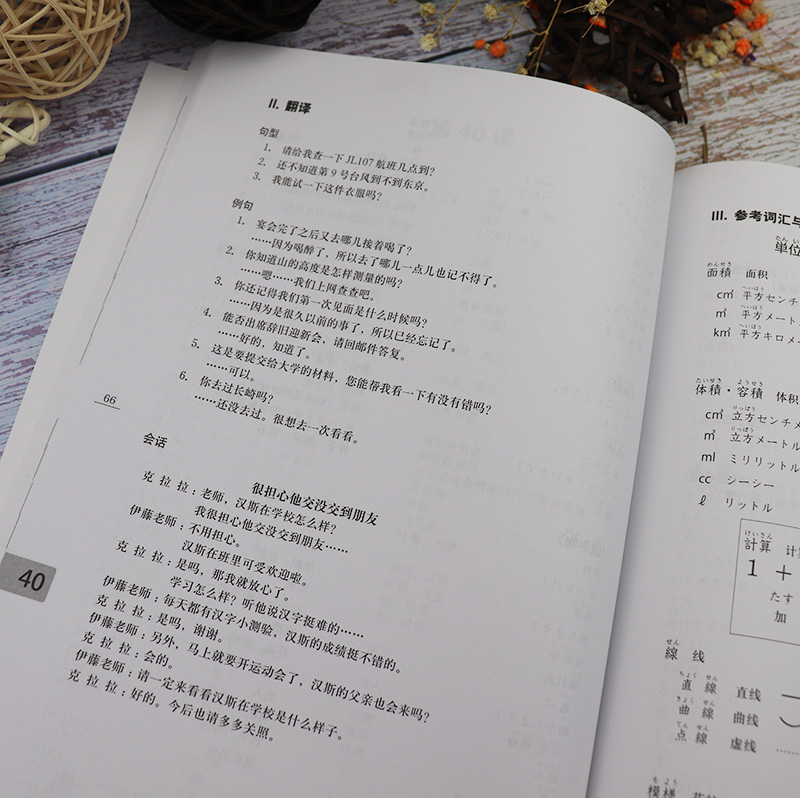 II. 翻译
句型
1. 请给我查一下 JL107 航班几点到?
2. 还不知道第 9 号台风到不到东京。
3. 我能试一下这件衣服吗?
例句
1. 宴会完了之后又去哪儿接着喝了?
……因为喝醉了,所以去了哪儿一点儿也记不得了。
2. 你知道山的高度是怎样测量的吗?
……嗯……我们上网查查吧。
3. 你还记得我们第一次见面是什么时候吗?
……因为是很久以前的事了,所以已经忘记了。
4. 能否出席辞旧迎新会,请回邮件答复。
……好的,知道了。
5. 这是要提交给大学的材料,您能帮我看一下有没有错吗?
……可以。
6. 你去过长崎吗?
……还没去过。很想去一次看看。
66
会话
很担心他交没交到朋友
克 拉 拉:老师,汉斯在学校怎么样?
我很担心他交没交到朋友……
伊藤老师:不用担心。
汉斯在班里可受欢迎啦。
克 拉 拉:是吗,那我就放心了。
学习怎么样?听他说汉字挺难的……
伊藤老师:每天都有汉字小测验,汉斯的成绩挺不错的。
克 拉 拉:是吗,谢谢。
伊藤老师:另外,马上就要开运动会了,汉斯的父亲也会来吗?
克 拉 拉:会的。
伊藤老师:请一定来看看汉斯在学校是什么样子。
克 拉 拉:好的。今后也请多多关照。
40
III. 参考词汇与
たん い
単位
めんせき
面積 面积
へいほう
c㎡ 平方センチメ
へいほう
㎡ 平方メート
へいほう
k㎡ 平方キロメー
たいせき ようせき
体積・容積 体积
りっぽう
c㎥ 立方センチメ
りっぽう
㎥ 立方メートル
ml ミリリットル
cc シーシー
ℓ リットル
けいさん
計算 计算
1 +
たす
加
せん
線 线
ちょく せん
直 線 直线
きょく せん
曲 線 曲线
てん せん
点 線 虚线
も よう
模様